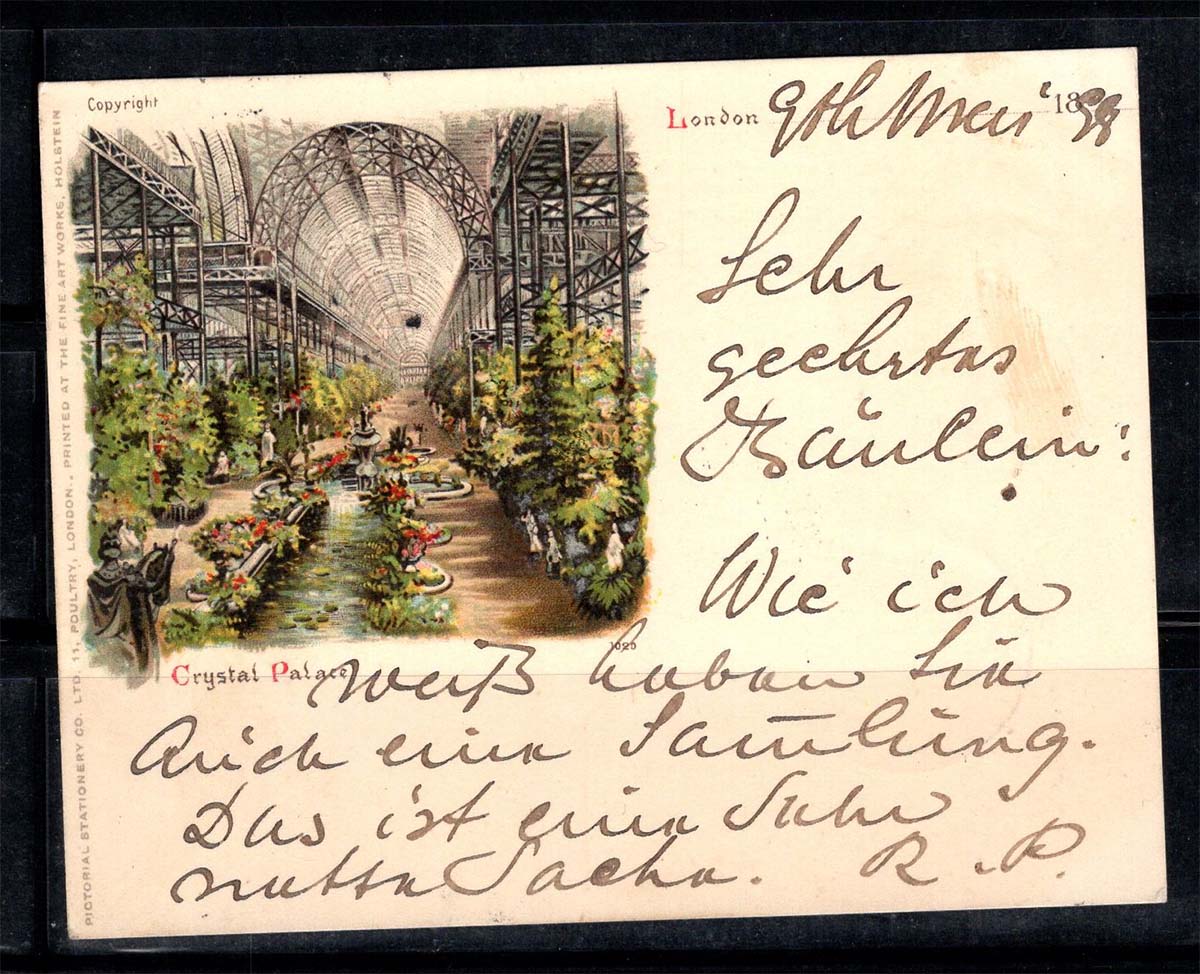 Copyright
London 9th Mai '1898
PICTORIAL STATIONERY CO. LTD. 11, POULTRY, LONDON., PRINTED AT THE FINE ART WORKS, HOLSTEIN
Sehr
geehrtes
Fräulein:
Wie ich
1029
Crystal Palace
weiß haben Sie
Auch eine Sam̅lung.
Das ist eine Sehr
nette Sache. R. P.